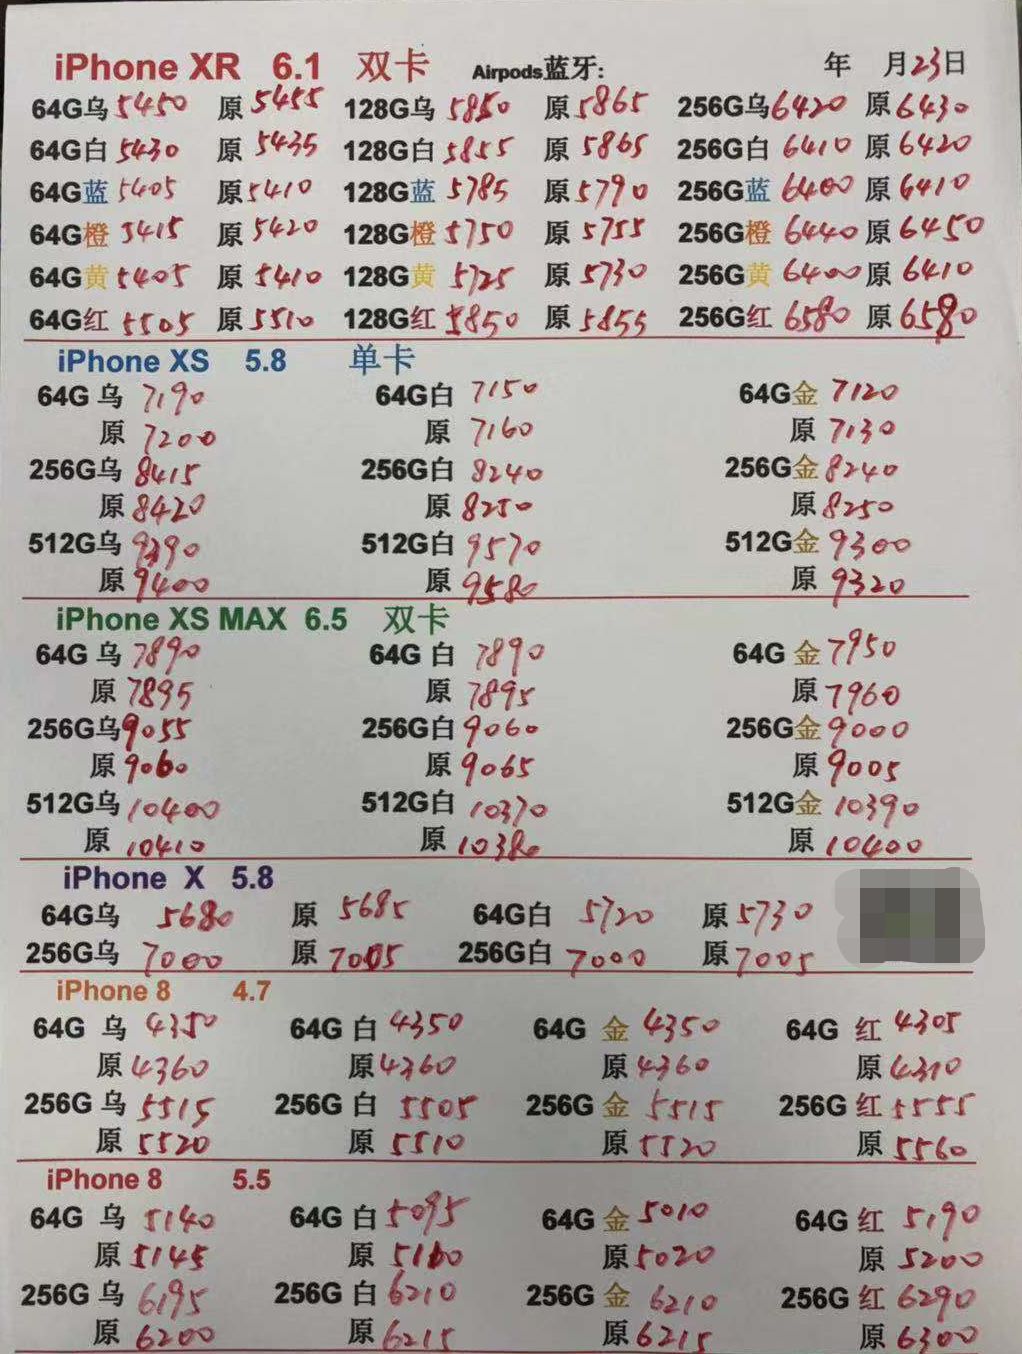 iPhone XR 6.1 双卡 Airpods蓝牙: 年 月23日
64G乌 5450 原 5455 128G乌 5850 原 5865 256G乌 6420 原 6430
64G白 5430 原 5435 128G白 5855 原 5865 256G白 6410 原 6420
64G蓝 5405 原 5410 128G蓝 5785 原 5790 256G蓝 6400 原 6410
64G橙 5415 原 5420 128G橙 5750 原 5755 256G橙 6440 原 6450
64G黄 5405 原 5410 128G黄 5725 原 5730 256G黄 6400 原 6410
64G红 5505 原 5510 128G红 5850 原 5855 256G红 6580 原 6590
iPhone XS 5.8 单卡
64G 乌 7190 64G白 7150 64G金 7120
原 7200 原 7160 原 7130
256G乌 8415 256G白 8240 256G金 8240
原 8420 原 8250 原 8250
512G乌 9390 512G白 9570 512G金 9300
原 9400 原 9580 原 9320
iPhone XS MAX 6.5 双卡
64G 乌 7890 64G 白 7890 64G 金 7950
原 7895 原 7895 原 7960
256G乌 9055 256G白 9060 256G金 9000
原 9060 原 9065 原 9005
512G乌 10400 512G白 10370 512G金 10390
原 10410 原 10380 原 10400
iPhone X 5.8
64G乌 5680 原 5685 64G白 5720 原 5730
256G乌 7000 原 7005 256G白 7000 原 7005
iPhone 8 4.7
64G 乌 4350 64G 白 4350 64G 金 4350 64G 红 4305
原 4360 原 4360 原 4360 原 4310
256G 乌 5515 256G 白 5505 256G 金 5515 256G 红 5555
原 5520 原 5510 原 5520 原 5560
iPhone 8 5.5
64G 乌 5140 64G 白 5095 64G 金 5010 64G 红 5190
原 5145 原 5100 原 5020 原 5200
256G 乌 6195 256G 白 6210 256G 金 6210 256G 红 6290
原 6200 原 6215 原 6215 原 6300